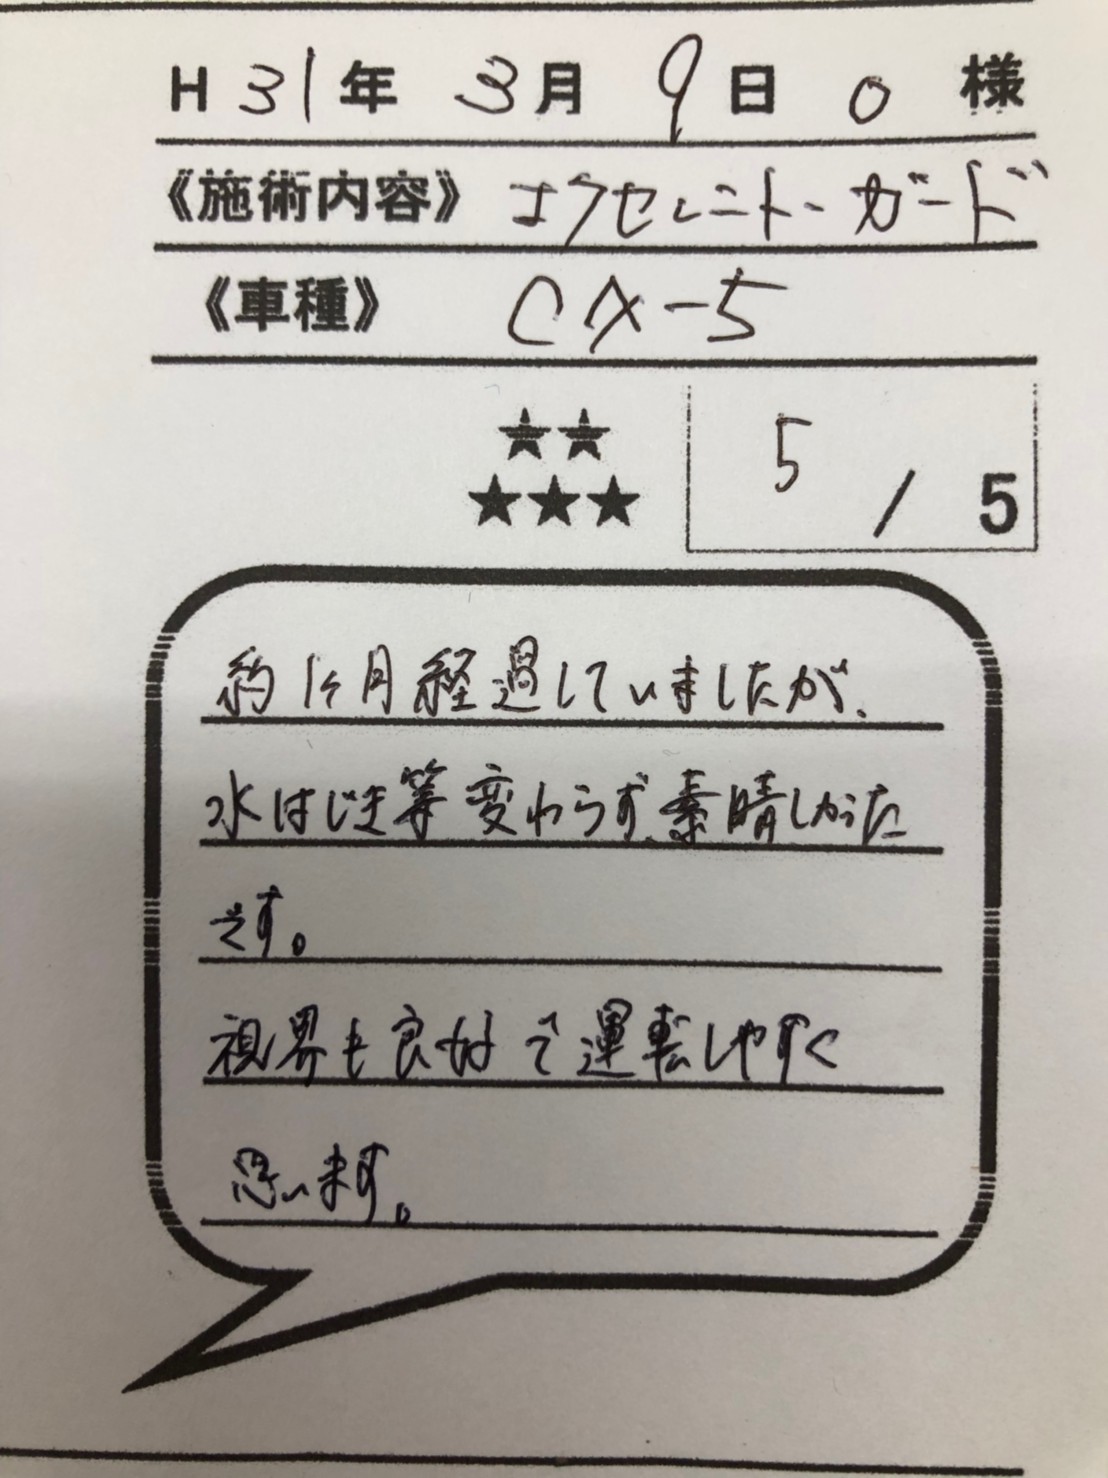 H 31年 3月 9日 O 様
《施術内容》 エクセレント・ガード
《車種》 CX-5
★★
★★★
5 / 5
約1ヶ月経過していましたが、
水はじき等変わらず、素晴しかった
です。
視界も良好で運転しやすく
思います。